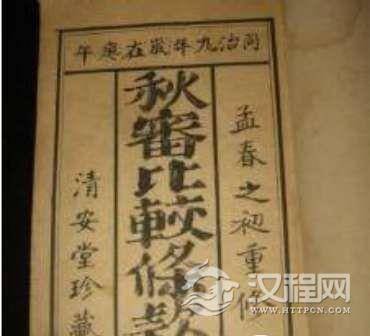 同治九年歲在庚午
孟春之初重
秋審比較條款
清安堂珍藏
汉程网
WWW.HTTPCN.COM